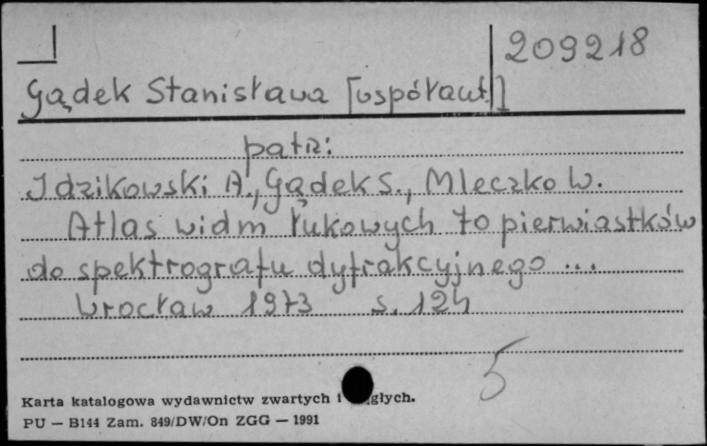 209218
Gądek Stanisława [współaut.]
patrz:
Idzikowski A., Gądek S., Mleczko W.
Atlas widm łukowych 70 pierwiastków
do spektrografu dyfrakcyjnego ...
Wrocław 1973 s. 124
5
Karta katalogowa wydawnictw zwartych i głych.
PU — B144 Zam. 849/DW/On ZGG — 1991